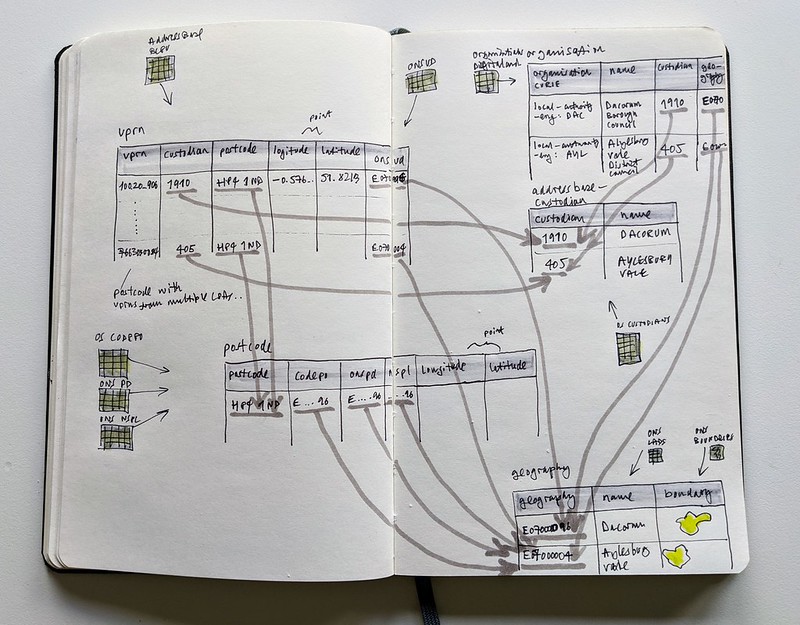 Addressbase
BLPU
uprn
point
uprn
custodian
postcode
logitude
latitude
ons ud
10020_906
1910
HP4 1ND
-0.576..
51.8213
405
HP4 1ND
E07 004
postcode with
uprns from multiple LPAs..
ONSUD
organisations
digital land
organisation
organisation
CURIE
name
custodian
geo-
graphy
local-authority
-eng: DAC
Dacorum
Borough
Council
1910
E070
local-authority
-eng: AYL
Aylesbury
vale
District
Council
405
address base-
custodian
custodian
name
1910
DACORUM
405
AYLESBURY
VALE
OS CUSTODIANS
OS CODEPO
ONS PD
ONS NSPL
postcode
point
postcode
codepo
onspd
nspl
Longitude
latitude
HP4 1ND
E....96
E....96
E...96
ONS
LADS
ONS
BOUNDARIES
geography
geography
name
boundary
E07000096
Dacorum
E0700004
Aylesbury
vale